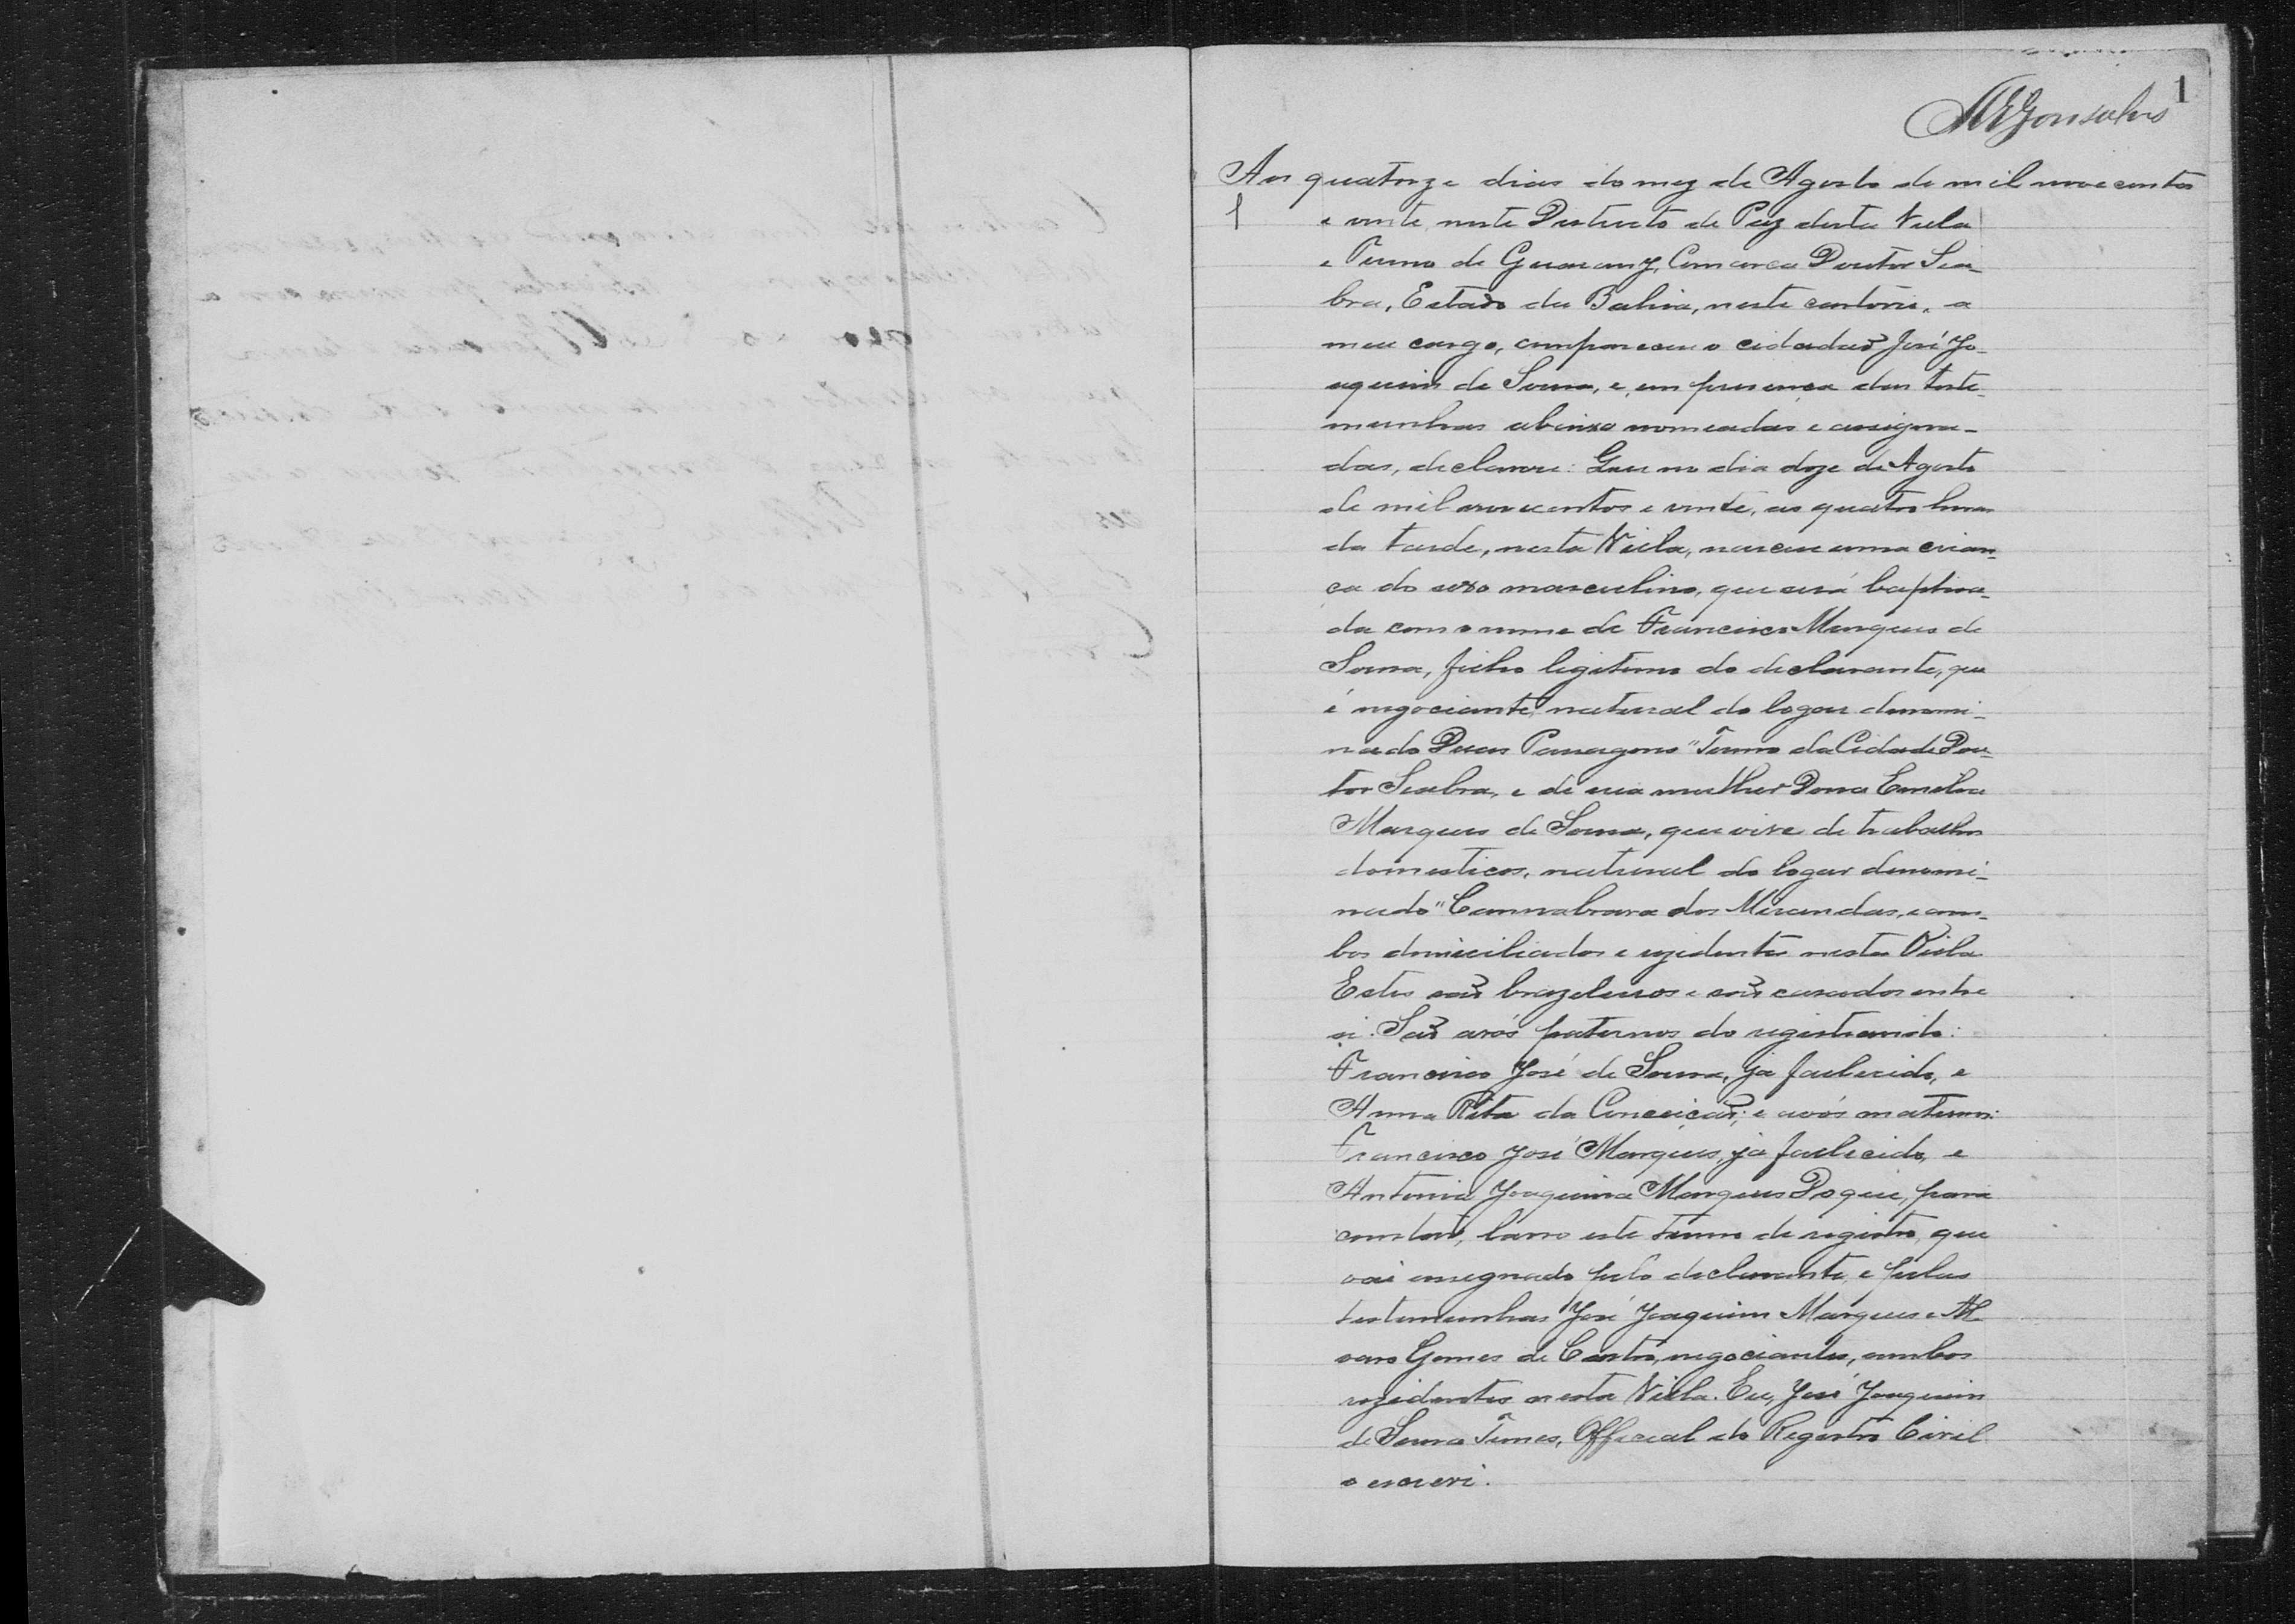 1
MEGonsalves
Aos quatorze dias do mez de Agosto de mil novecentos
1 e vinte, neste Districto de Paz desta Villa
e Termo de Guarany, Comarca Doutor Sea-
bra, Estado da Bahia, neste cartorio, a
meu cargo, compareceu o cidadaõ José Jo-
aquim de Sousa, e, em presença das teste-
munhas abaixo nomeadas e assigna-
das, declarou: Que no dia doze de Agosto
de mil novecentos e vinte, as quatro horas
da tarde, nesta Villa, nasceu uma crian-
ça do sexo masculino, que será baptisa-
da com o nome de Francisco Marques de
Sousa, filho legitimo do declarante, que
é negociante, natural do logar denomi-
nado Duas Passagens" Termo da Cidade Dou-
tor Seabra, e de sua mulher Dona Emilia
Marques de Sousa, que vive de trabalhos
domesticos, natural do logar denomi-
nado "Cannabrava dos Mirandas, e am-
bos domiciliados e rezidentes nesta Villa
Estes saõ brazileiros e saõ casados entre
si. Saõ avós paternos do registrando:
Francisco José de Sousa, ja fallecido, e
Anna Rita da Conceiçaõ; e avós maternos:
Francisco José Marques, ja fallecido, e
Antonia Joaquina Marques Do que, para
constar, lavro este termo de registro, que
vai assegnado pelo declarante, e pelas
testemunhas José Joaquim Marques e Al
varo Gomes de Castro, negociantes, ambos
rezidentes nesta Villa. Eu, José Joaquim
de Sousa Official do Registro Civil
o escrevi.